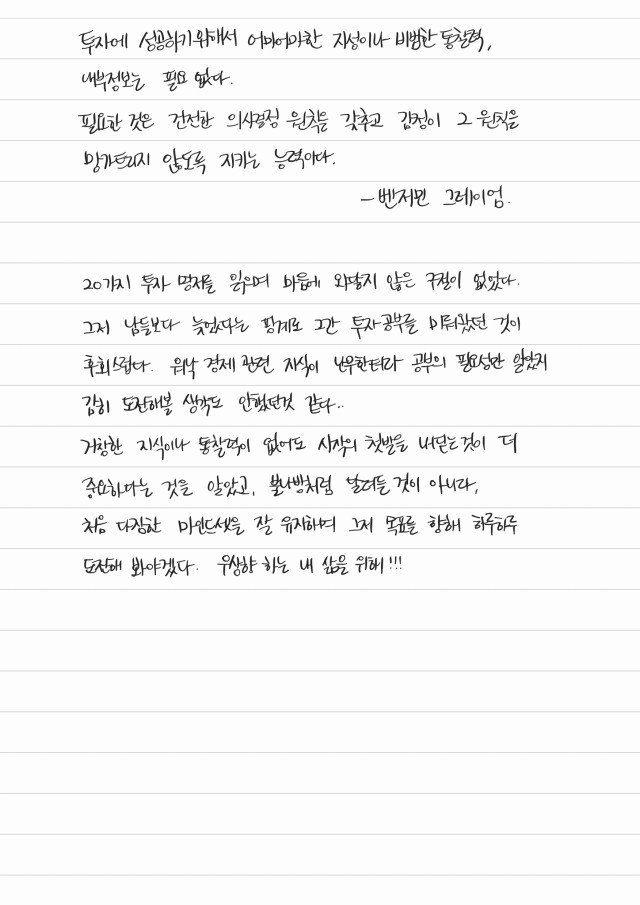 투자에 성공하기 위해서 어마어마한 지성이나 비범한 통찰력,
내부정보는 필요 없다.
필요한 것은 건전한 의사결정 원칙을 갖추고 감정이 그 원칙을
망가트리지 않도록 지키는 능력이다.
- 벤저민 그레이엄.
20가지 투자 명저를 읽으며 마음에 와닿지 않은 구절이 없었다.
그저 남들보다 늦었다는 핑계로 그간 투자공부를 미뤄왔던 것이
후회스럽다. 워낙 경제 관련 지식이 난무한터라 공부의 필요성만 알았지
감히 도전해볼 생각도 안했던것 같다..
거창한 지식이나 통찰력이 없어도 시작의 첫발을 내딛는것이 더
중요하다는 것을 알았고, 불나방처럼 달려들 것이 아니라,
처음 다짐한 마인드셋을 잘 유지하며 그저 목표를 향해 하루하루
도전해 봐야겠다. 우상향 하는 내 삶을 위해!!!